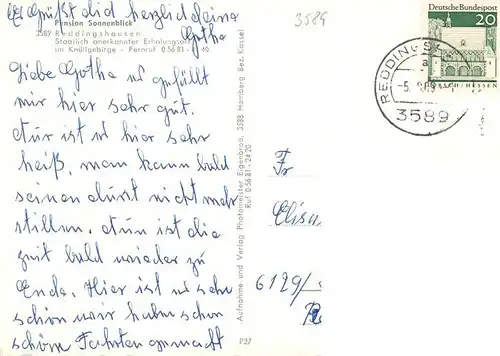 Es Grüßt dich herzlich deine
Gotha
Pension Sonnenblick
3589 Reddingshausen
Staatlich anerkannter Erholungsort
im Knüllgebirge - Fernruf 0 56 81 - 40
Liebe Gotha es gefällt
mir hier sehr gut.
Nur ist es hier sehr
heiß, man kann bald
seinen durst nicht mehr
stillen. Nun ist die
zeit bald wieder zu
Ende. Hier ist es sehr
schön wir haben schon
schöne Fahrten gemacht
Aufnahme und Verlag Photomeister Eigenbrod, 3588 Homberg Bez. Kassel
Ruf 0 56 81 - 24 20
P27
3589
Deutsche Bundespost
20
LORSCH/HESSEN
REDDINGS
a
-5. 8.69
3589
Fr
Elisa
6129/